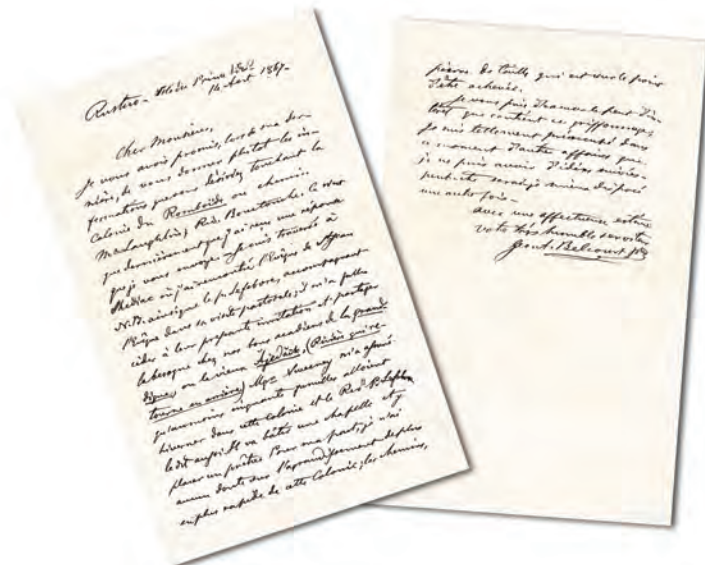 Rustico - Isle du Prince Édd
14 Aout 1867 -
Cher Monsieur,
Je vous avois promis, lors de ma der-
nière, de vous donner plutot les in-
formations que vous désirez touchant la
Colonie du Romboïde ou chemin
Maclaughlin, Riv. Bouctouche. Ce n'est
que dernièrement que j'ai reçu une réponse
que je vous envoye. Je suis traversé à
Shédiac où j'ai rencontré l'Evêque de St Jean
N.B. ainsi que le p. Lefebvre, accompagnant
l'Evêque dans sa visite pastorale; il m'a fallu
céder à leur pressante invitation et partager
la besogne chez nos bons acadiens de la grand
digue, ou le vieux Gédaïc, (Rivière qui re-
tourne en arrière) Mgr Sweeney m'a assuré
qu'au moins cinquante familles alloient
hiverner dans cette Colonie et le Revd P. Lefebvre
le dit aussi. Il va bâtir une chapelle et y
placer un prêtre. Pour ma part, je n'ai
aucun doute sur l'agrandissement de plus
en plus rapide de cette Colonie; les chemins,
pierre de taille qui est sur le point
d'être achevée.
Je vous prie d'excuser le peu d'in-
térêt que contient ce griffonnage;
Je suis tellement préoccupé dans
ce moment d'autres affaires que
je ne puis avoir d'idées suivies.
peut-être serai-je mieux disposé
une autre fois -
avec une affectueuse estime
votre très humble serviteur
Geo. Ant. Belcourt ptre